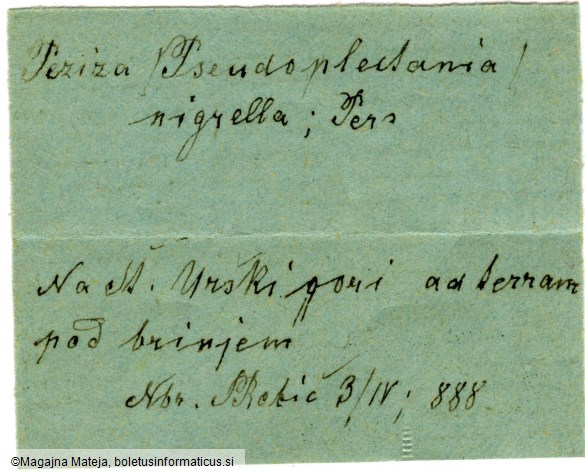 Peziza (Pseudoplectania)
nigrella; Pers
Na Št. Urški gori ad terram
pod brinjem
Nbr. 3/IV; 888.
©Magajna Mateja, boletusinformaticus.si